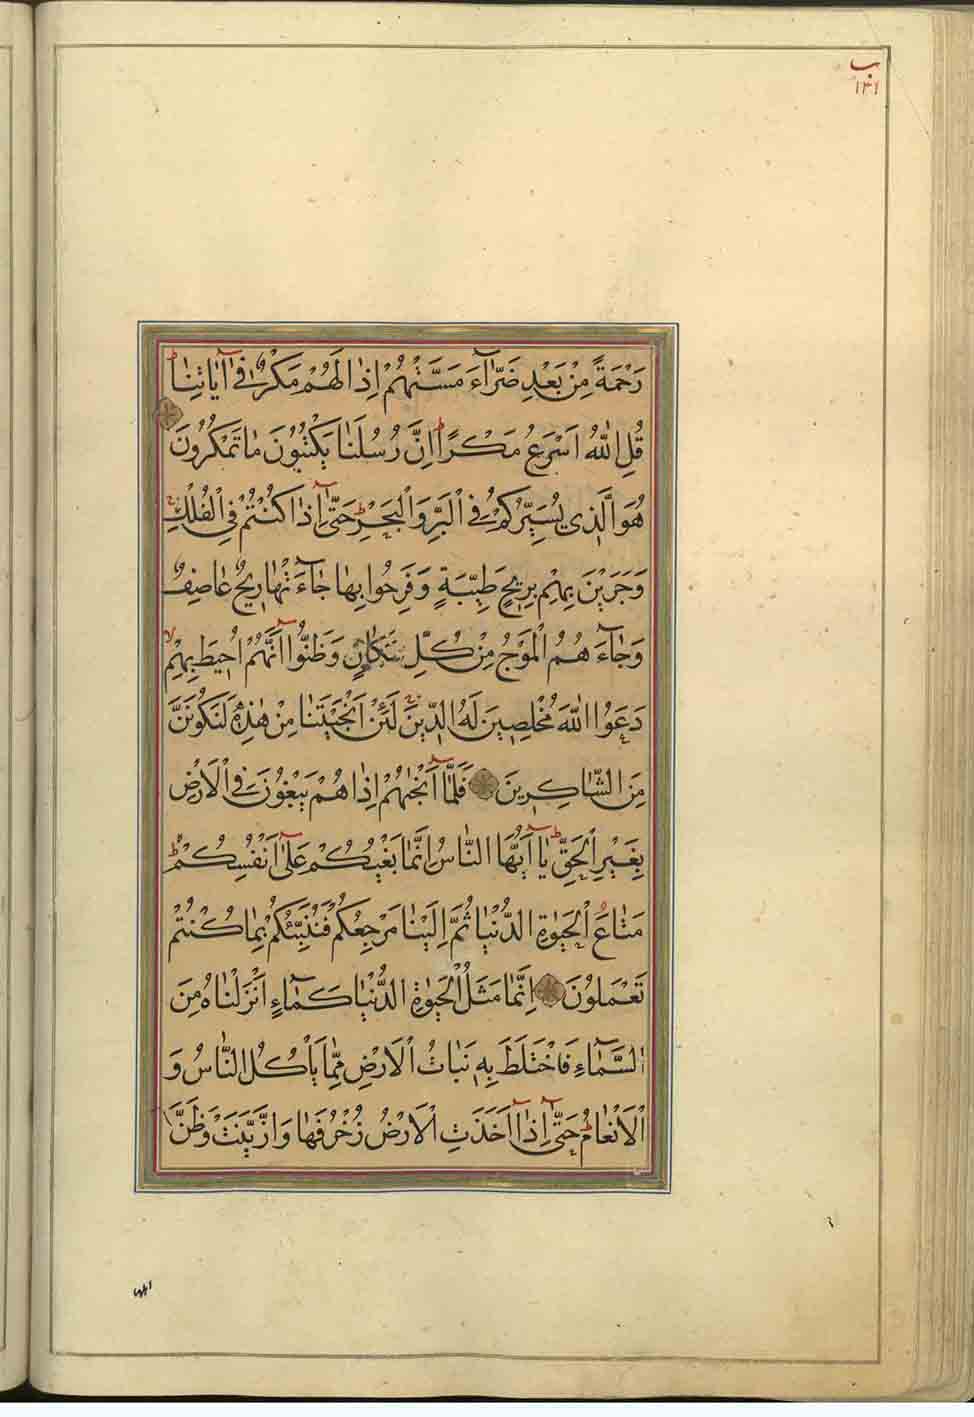 ب
۱۴۱
رَحْمَةً مِنْ بَعْدِ ضَرَّآءَ مَسَّتْهُمْ اِذٰا لَهُمْ مَكْرٌ فٖٓى اٰيٰاتِنٰا ط
قُلِ اللّٰهُ اَسْرَعُ مَكْرًا ط اِنَّ رُسُلَنٰا يَكْتُبُونَ مٰا تَمْكُرُونَ
هُوَ الَّذٖى يُسَيِّرُكُمْ فِى الْبَرِّ وَالْبَحْرِ ط حَتّٰٓى اِذٰا كُنْتُمْ فِى الْفُلْكِ ج
وَجَرَيْنَ بِهِمْ بِرٖيحٍ طَيِّبَةٍ وَفَرِحُوا بِهٰا جٰآءَتْهٰا رٖيحٌ عٰاصِفٌ
وَجٰآءَهُمُ الْمَوْجُ مِنْ كُلِّ مَكٰانٍ وَظَنُّٓوا اَنَّهُمْ اُحٖيطَ بِهِمْ لا
دَعَوُا اللّٰهَ مُخْلِصٖينَ لَهُ الدّٖينَ ج لَئِنْ اَنْجَيْتَنٰا مِنْ هٰذِهٖ لَنَكُونَنَّ
مِنَ الشّٰاكِرٖينَ فَلَمّٰٓا اَنْجٰهُمْ اِذٰا هُمْ يَبْغُونَ فِى الْاَرْضِ
بِغَيْرِ الْحَقِّ ط يٰٓا اَيُّهَا النّٰاسُ اِنَّمٰا بَغْيُكُمْ عَلٰٓى اَنْفُسِكُمْ ط
مَتٰاعُ الْحَيٰوةِ الدُّنْيٰا ثُمَّ اِلَيْنٰا مَرْجِعُكُمْ فَنُنَبِّئُكُمْ بِمٰا كُنْتُمْ
تَعْمَلُونَ اِنَّمٰا مَثَلُ الْحَيٰوةِ الدُّنْيٰا كَمٰٓاءٍ اَنْزَلْنٰاهُ مِنَ
السَّمٰٓاءِ فَاخْتَلَطَ بِهٖ نَبٰاتُ الْاَرْضِ مِمّٰا يَاْكُلُ النّٰاسُ وَ
الْاَنْعٰامُ ط حَتّٰٓى اِذٰٓا اَخَذَتِ الْاَرْضُ زُخْرُفَهٰا وَازَّيَّنَتْ وَظَنَّ
اهلها